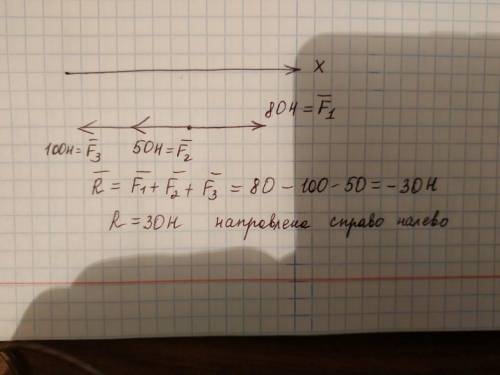 X
80Н = F̅₁
100Н = F̅₃ 50Н = F̅₂
R̅ = F̅₁ + F̅₂ + F̅₃ = 80 - 100 - 50 = - 30Н
R = 30Н направлена справо налево